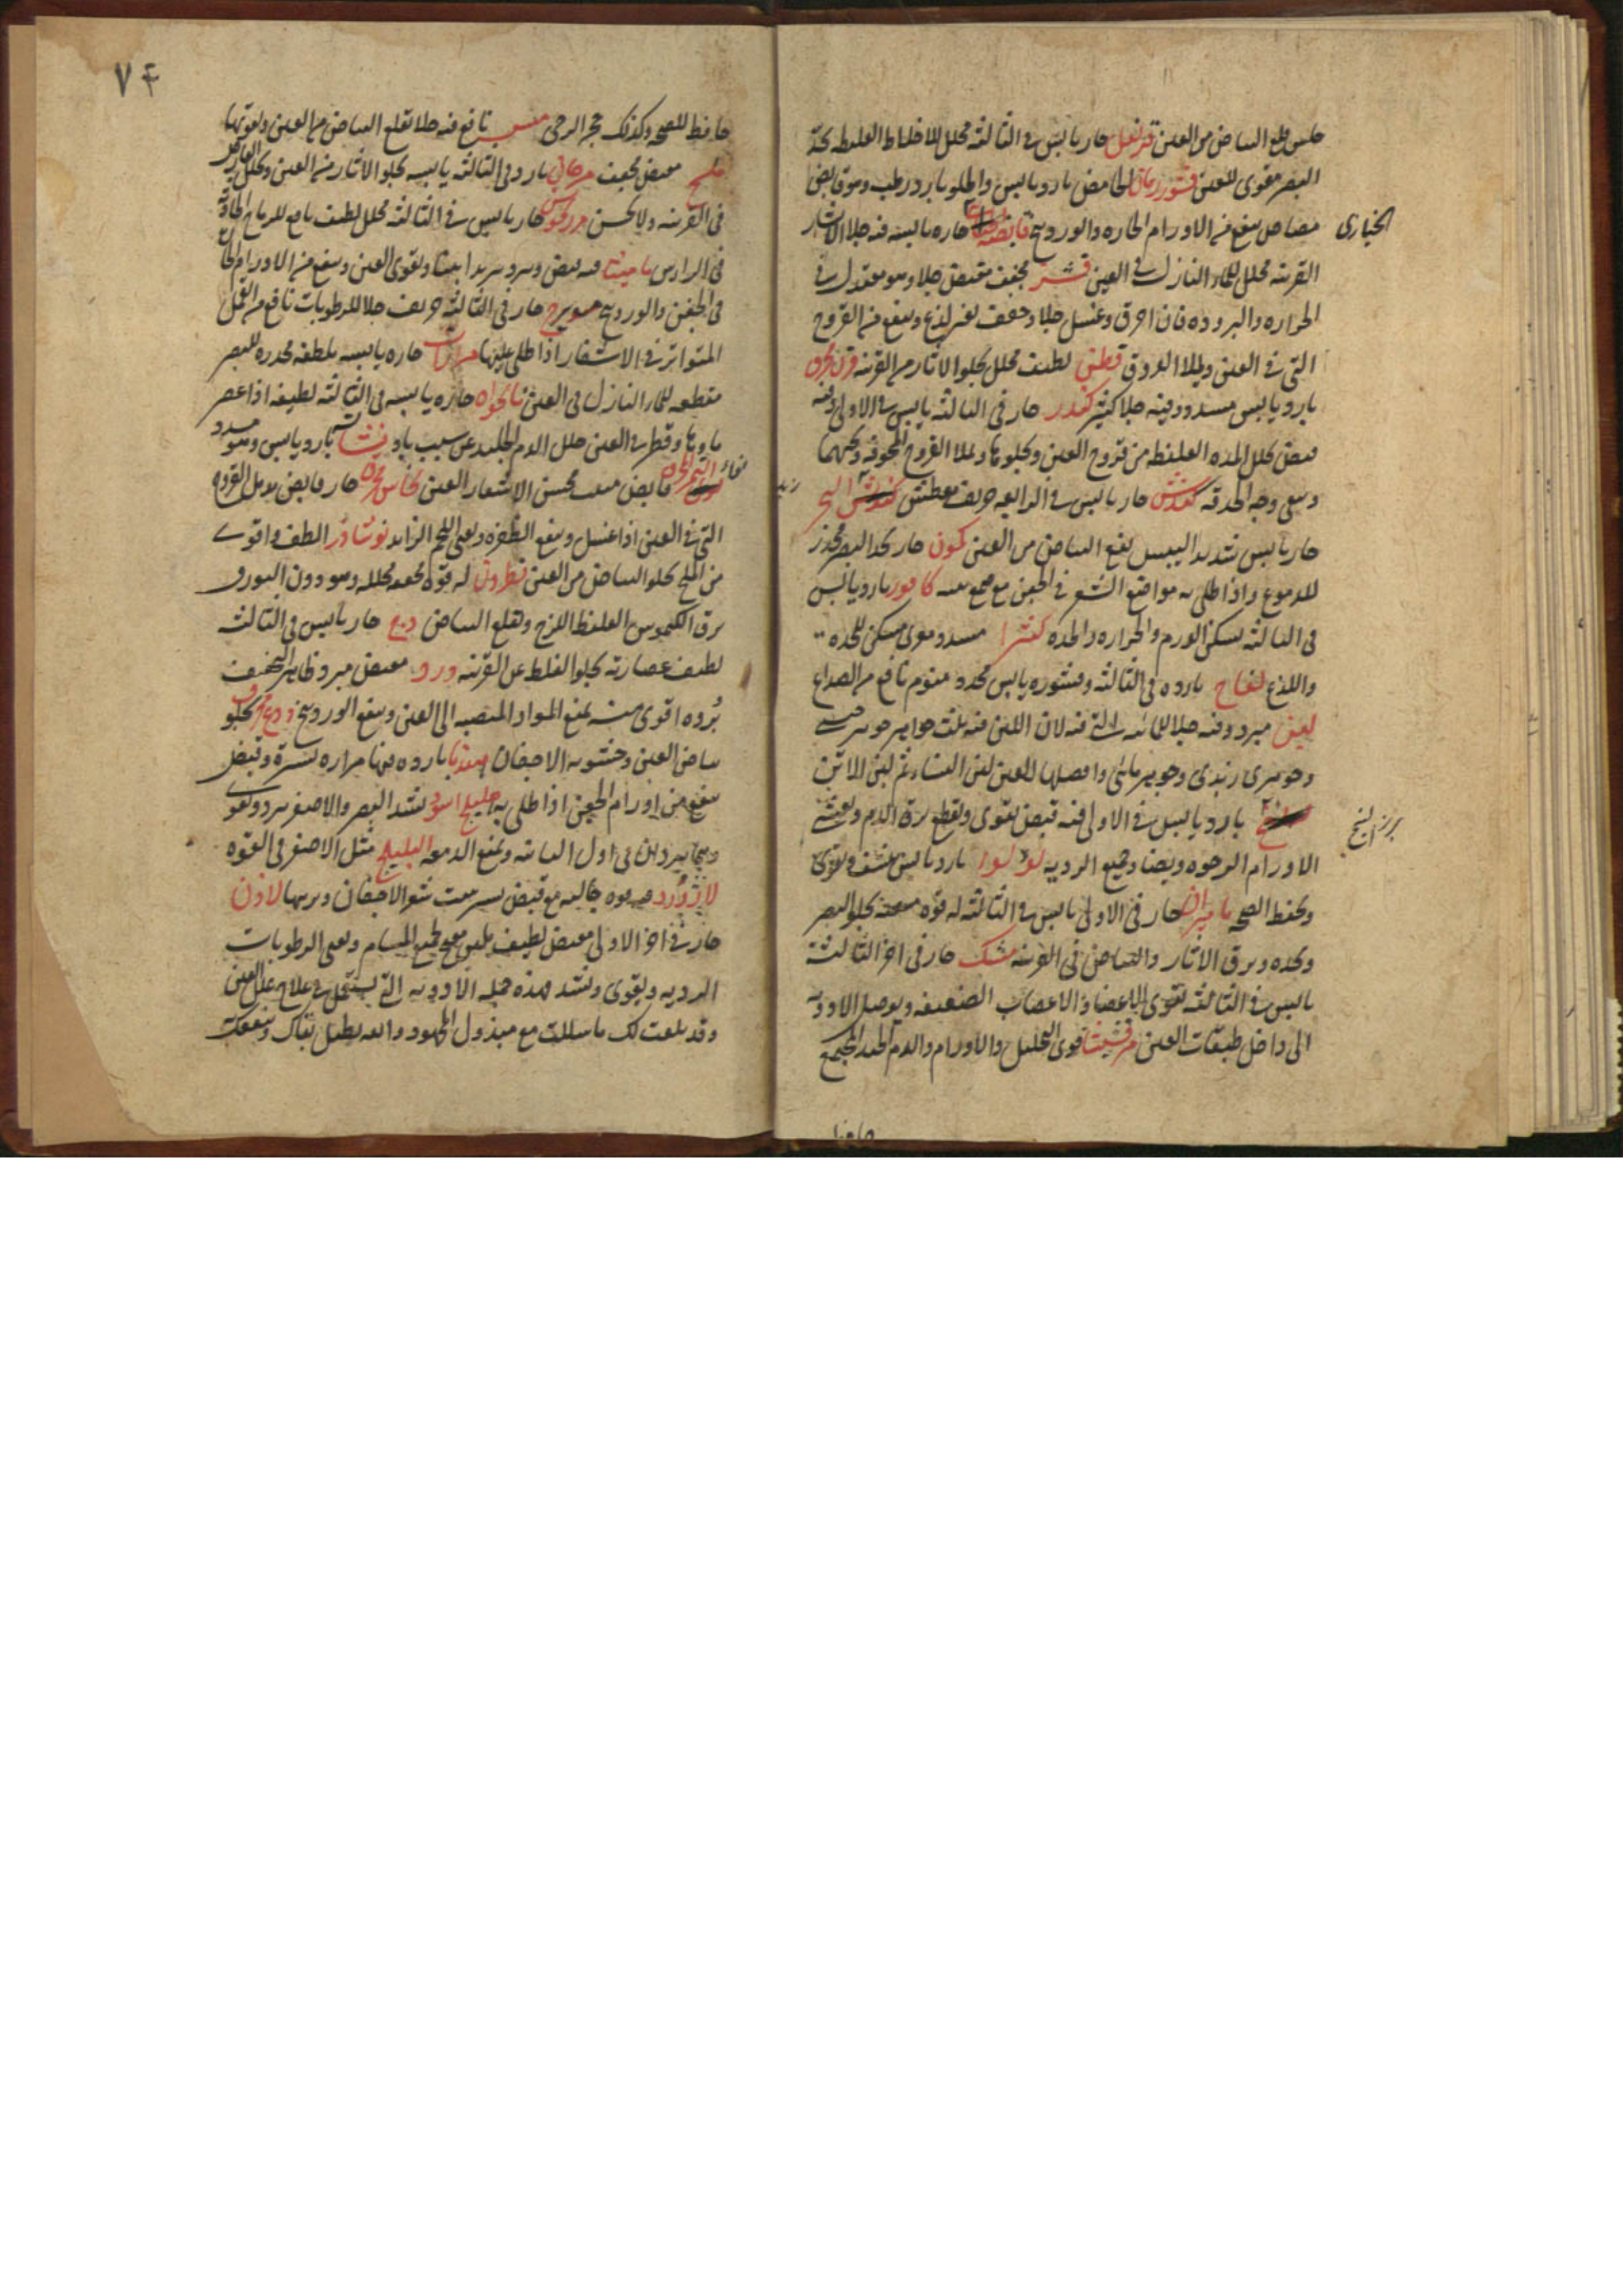 جلس قلع البياض من العين قرنفل حار يابس في الثالثة محلل للاخلاط الغليظه يحد
البصر مقوى للعين قشور رمان الحامض بارد يابس والحلو بارد رطب وهو قابض
مصاص ينفع من الاورام الحاره والوردينج حاره يابسه فيه جلا الاثار
القرنيه محلل للماء النازل في العين قشر مجفف منقص جلا وهو معتدل في
الحراره والبروده فان احرق وغسل جلا وجفف بغير لذع وينفع من القروح
التي في العين ويملا العروق قطن لطيف محلل يجلوا الاثار من القرنيه قرن محرق
بارد يابس مسدد وفيه جلا كثير كندر حار في الثالثه يابس في الاولى وفيه
قبض يحلل المده الغليظه من قروح العين ويجلوها ويملا القروح
وينقى وجه الحدقه كندس حار يابس في الرابعه حريف معطش
حار يابس شديد اليبس يقلع البياض من العين كمون حار يحد البصر محدر
للدموع واذا طلي به مواضع الشعر في الجفن مع صمغ منعه كافور بارد يابس
في الثالثه يسكن الورم والحراره والحده كثيرا مسدد مغرى مسكن للحده
واللذع لفاح بارده في الثالثه وقشوره يابس مخدر منوم نافع من الصداع
لبن مبرد وفيه جلا للمائيه التي فيه لان اللبن فيه ثلث جواهر جوهر جبنى
وجوهرى زبدى وجوهر مائى وافضلها للعين لبن النساء ثم لبن الاتن
بارد يابس في الاولى فيه قبض يقوى ويقطع نزف الدم ويفش
الاورام الرخوه وايضا وجميع الرديه لولوا بارد يابس ينشف ويقوى
ويحفظ الصحه ماميران حار في الاولى يابس في الثالثه له قوه يجلو البصر
ويحده ويرق الاثار والبياض في القرنيه مسك حار في اخر الثالثه
يابس في الثالثه يقوى الاعضا والاعصاب الضعيفه ويوصل الادويه
الى داخل طبقات العين مرقشيثا قوى التحليل والاورام والدم الجامد المجتمع
الخيارى
بزر البنج
حافظ
٧٤
حافظ للصحه وكذلك حجر الرحى نافع فيه جلا يقلع البياض من العين ويقويها
ملح مقبض مجفف مرجان بارد في الثالثه يابسه يجلو الاثار من العين ويحلل العارض
في القرنيه ولا يخشن مرزنجوش حار يابس في الثالثه محلل لطيف نافع للرياح الحادة
في الراس ماميثا فيه قبض ويبرد تبريدا بينا ويقوى العين وينفع من الاورام الحارة
في الجفن والوردينج ميويزج حار في الثالثه حريف جلا للرطوبات نافع من القمل
المتواتر في الاشفار اذا طلى عليها مرارات حاره يابسه ملطفه محدره للبصر
مقطعه للماء النازل في العين نانخواه حاره يابسه في الثالثه لطيفه اذا عصر
ماوها وقطر في العين حلل الدم الجامد عن سبب باد نشا بارد يابس وهو مسدد
نوى التمر المحرق قابض محسن الاشفار العين نحاس محرق حار قابض يدمل القروح
التي في العين اذا غسل وينفع الظفره ويفنى اللحم الزايد نوشادر الطف واقوى
من الملح يجلو البياض من العين نطرون له قوه محلله وهو دون البورق
يرق الكيموس الغليظ اللزج ويقلع البياض وج حار يابس في الثالثه
لطيف عصارته يجلوا الغلظ عن القرنيه ورد مقبض مبرد ظاهر التجفيف
بزره اقوى منه يمنع المواد المنصبه الى العين وينفع الوردينج ودع محرق يجلو
بياض العين وخشونه الاجفان هندبا بارده فيها مراره يسيرة وقبض
ينفع من اورام الجفن اذا طلى به هليلج اسود يشد البصر والاصفر يبرد ويقوى
وهما يبردان في اول الثانيه ويمنع الدمعه البليلج مثل الاصفر في القوه
لازورد فيه قوه جاليه مع قبض يسير ينبت شعر الاجفان ويربيها لاذن
حار في اخر الاولى مقبض لطيف ملين مفتح لجميع المسام ويفنى الرطوبات
الرديه ويقوى ويشد هذه جمله الادويه التي يستعمل في علاج علل العين
وقد بلغت لك ما سالت مع مبذول المجهود والله يطيل بقاك وينفعك